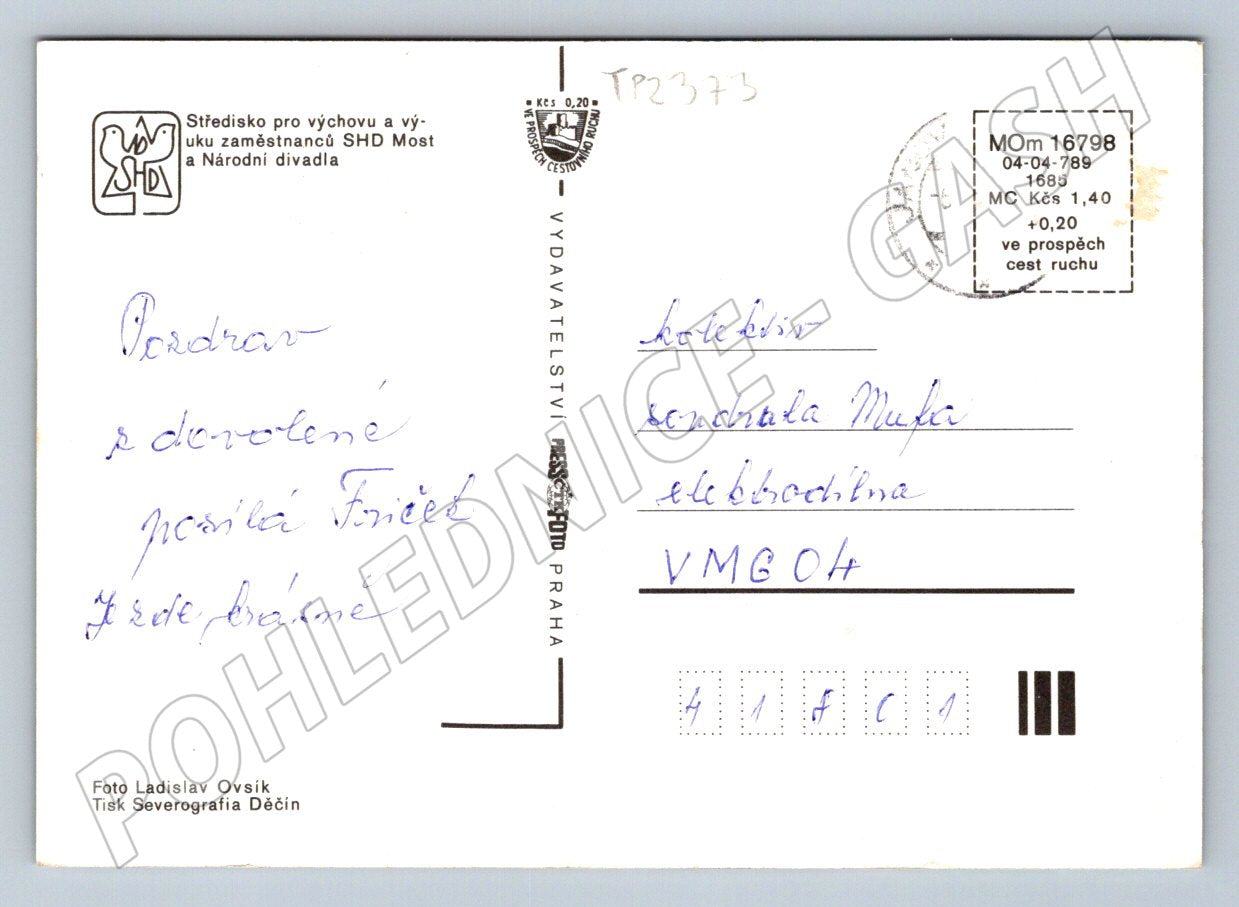 TP2373
Kčs 0,20
VE PROSPĚCH CESTOVNÍHO RUCHU
SHD
Středisko pro výchovu a vý-
uku zaměstnanců SHD Most
a Národní divadla
MOm 16798
04-04-789
1685
MC Kčs 1,40
+0,20
ve prospěch
cest ruchu
Pozdrav
z dovolené
posílá Friček
Je zde krásně
VYDAVATELSTVÍ PRESSFOTO PRAHA
kolektiv
elektrodílna
VMG OH
Foto Ladislav Ovsík
Tisk Severografia Děčín
POHLEDNICE - GASH